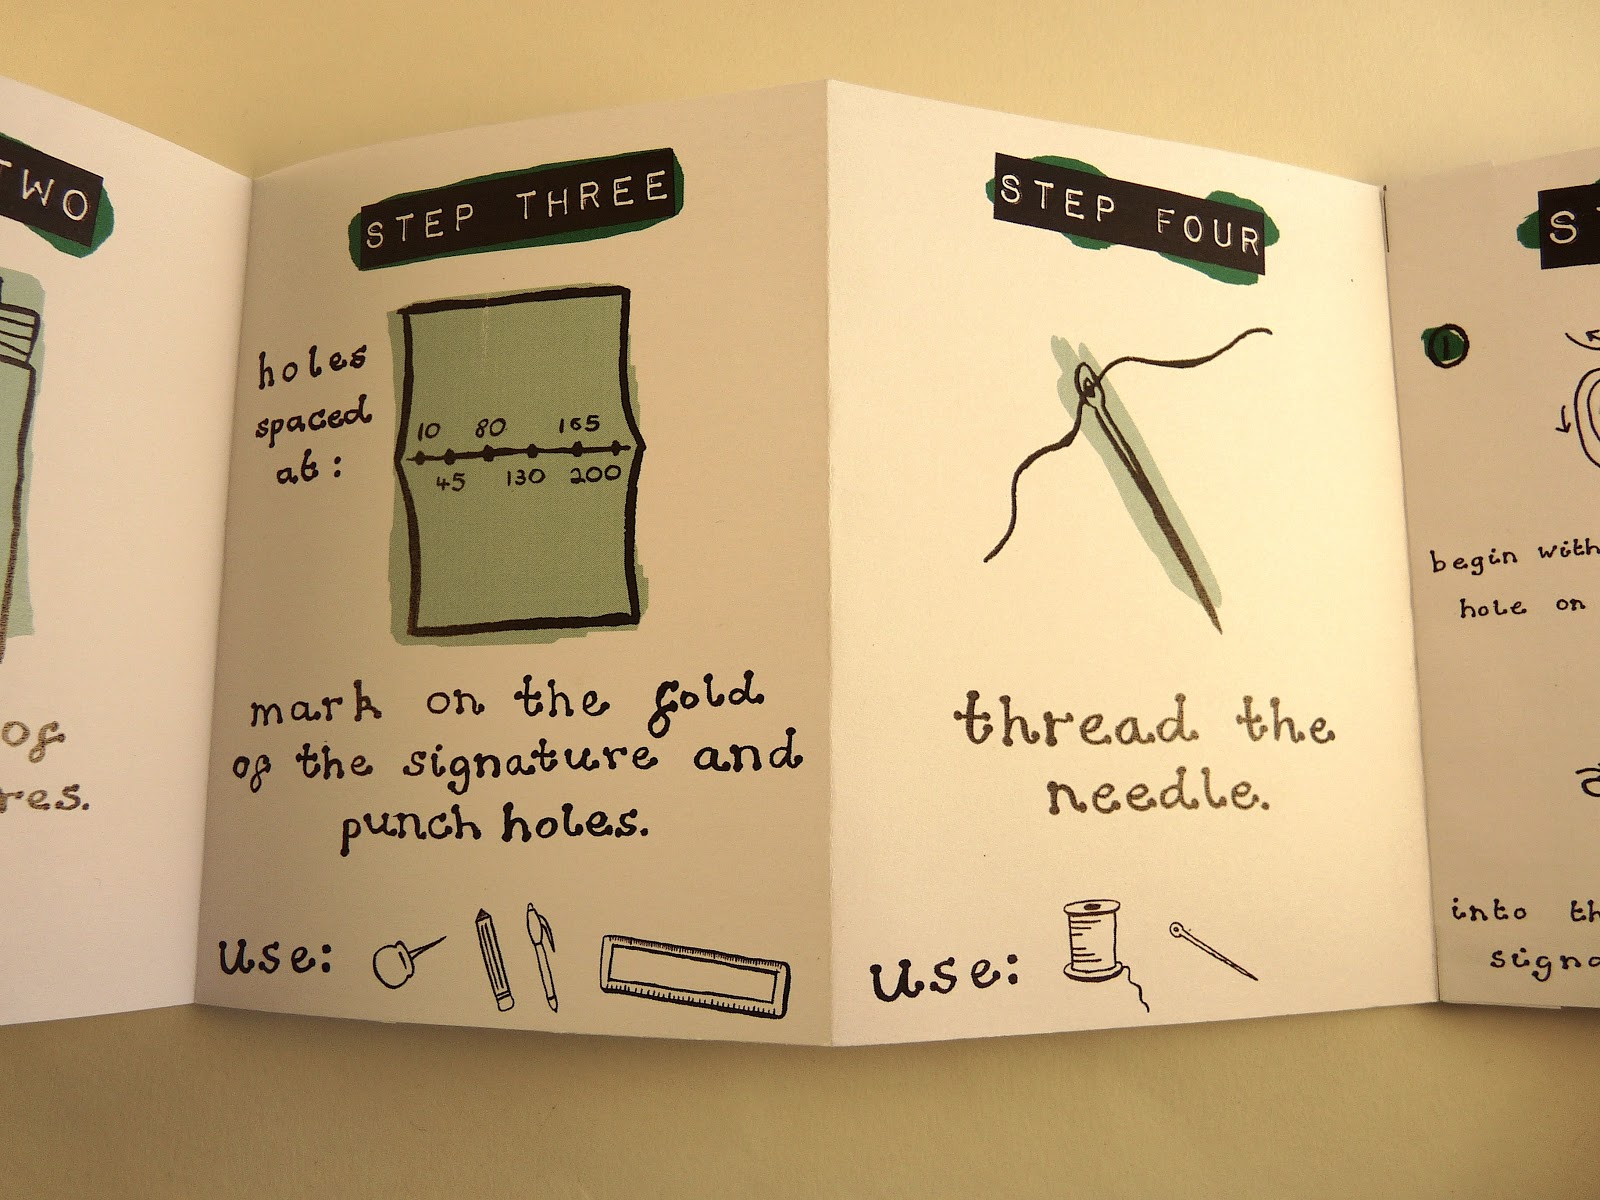 TWO
of
res.
STEP THREE
holes
spaced
at:
10 80 165
45 130 200
mark on the fold
of the signature and
punch holes.
use:
STEP FOUR
thread the
needle.
use:
S
1
begin with
hole on
into th
signa